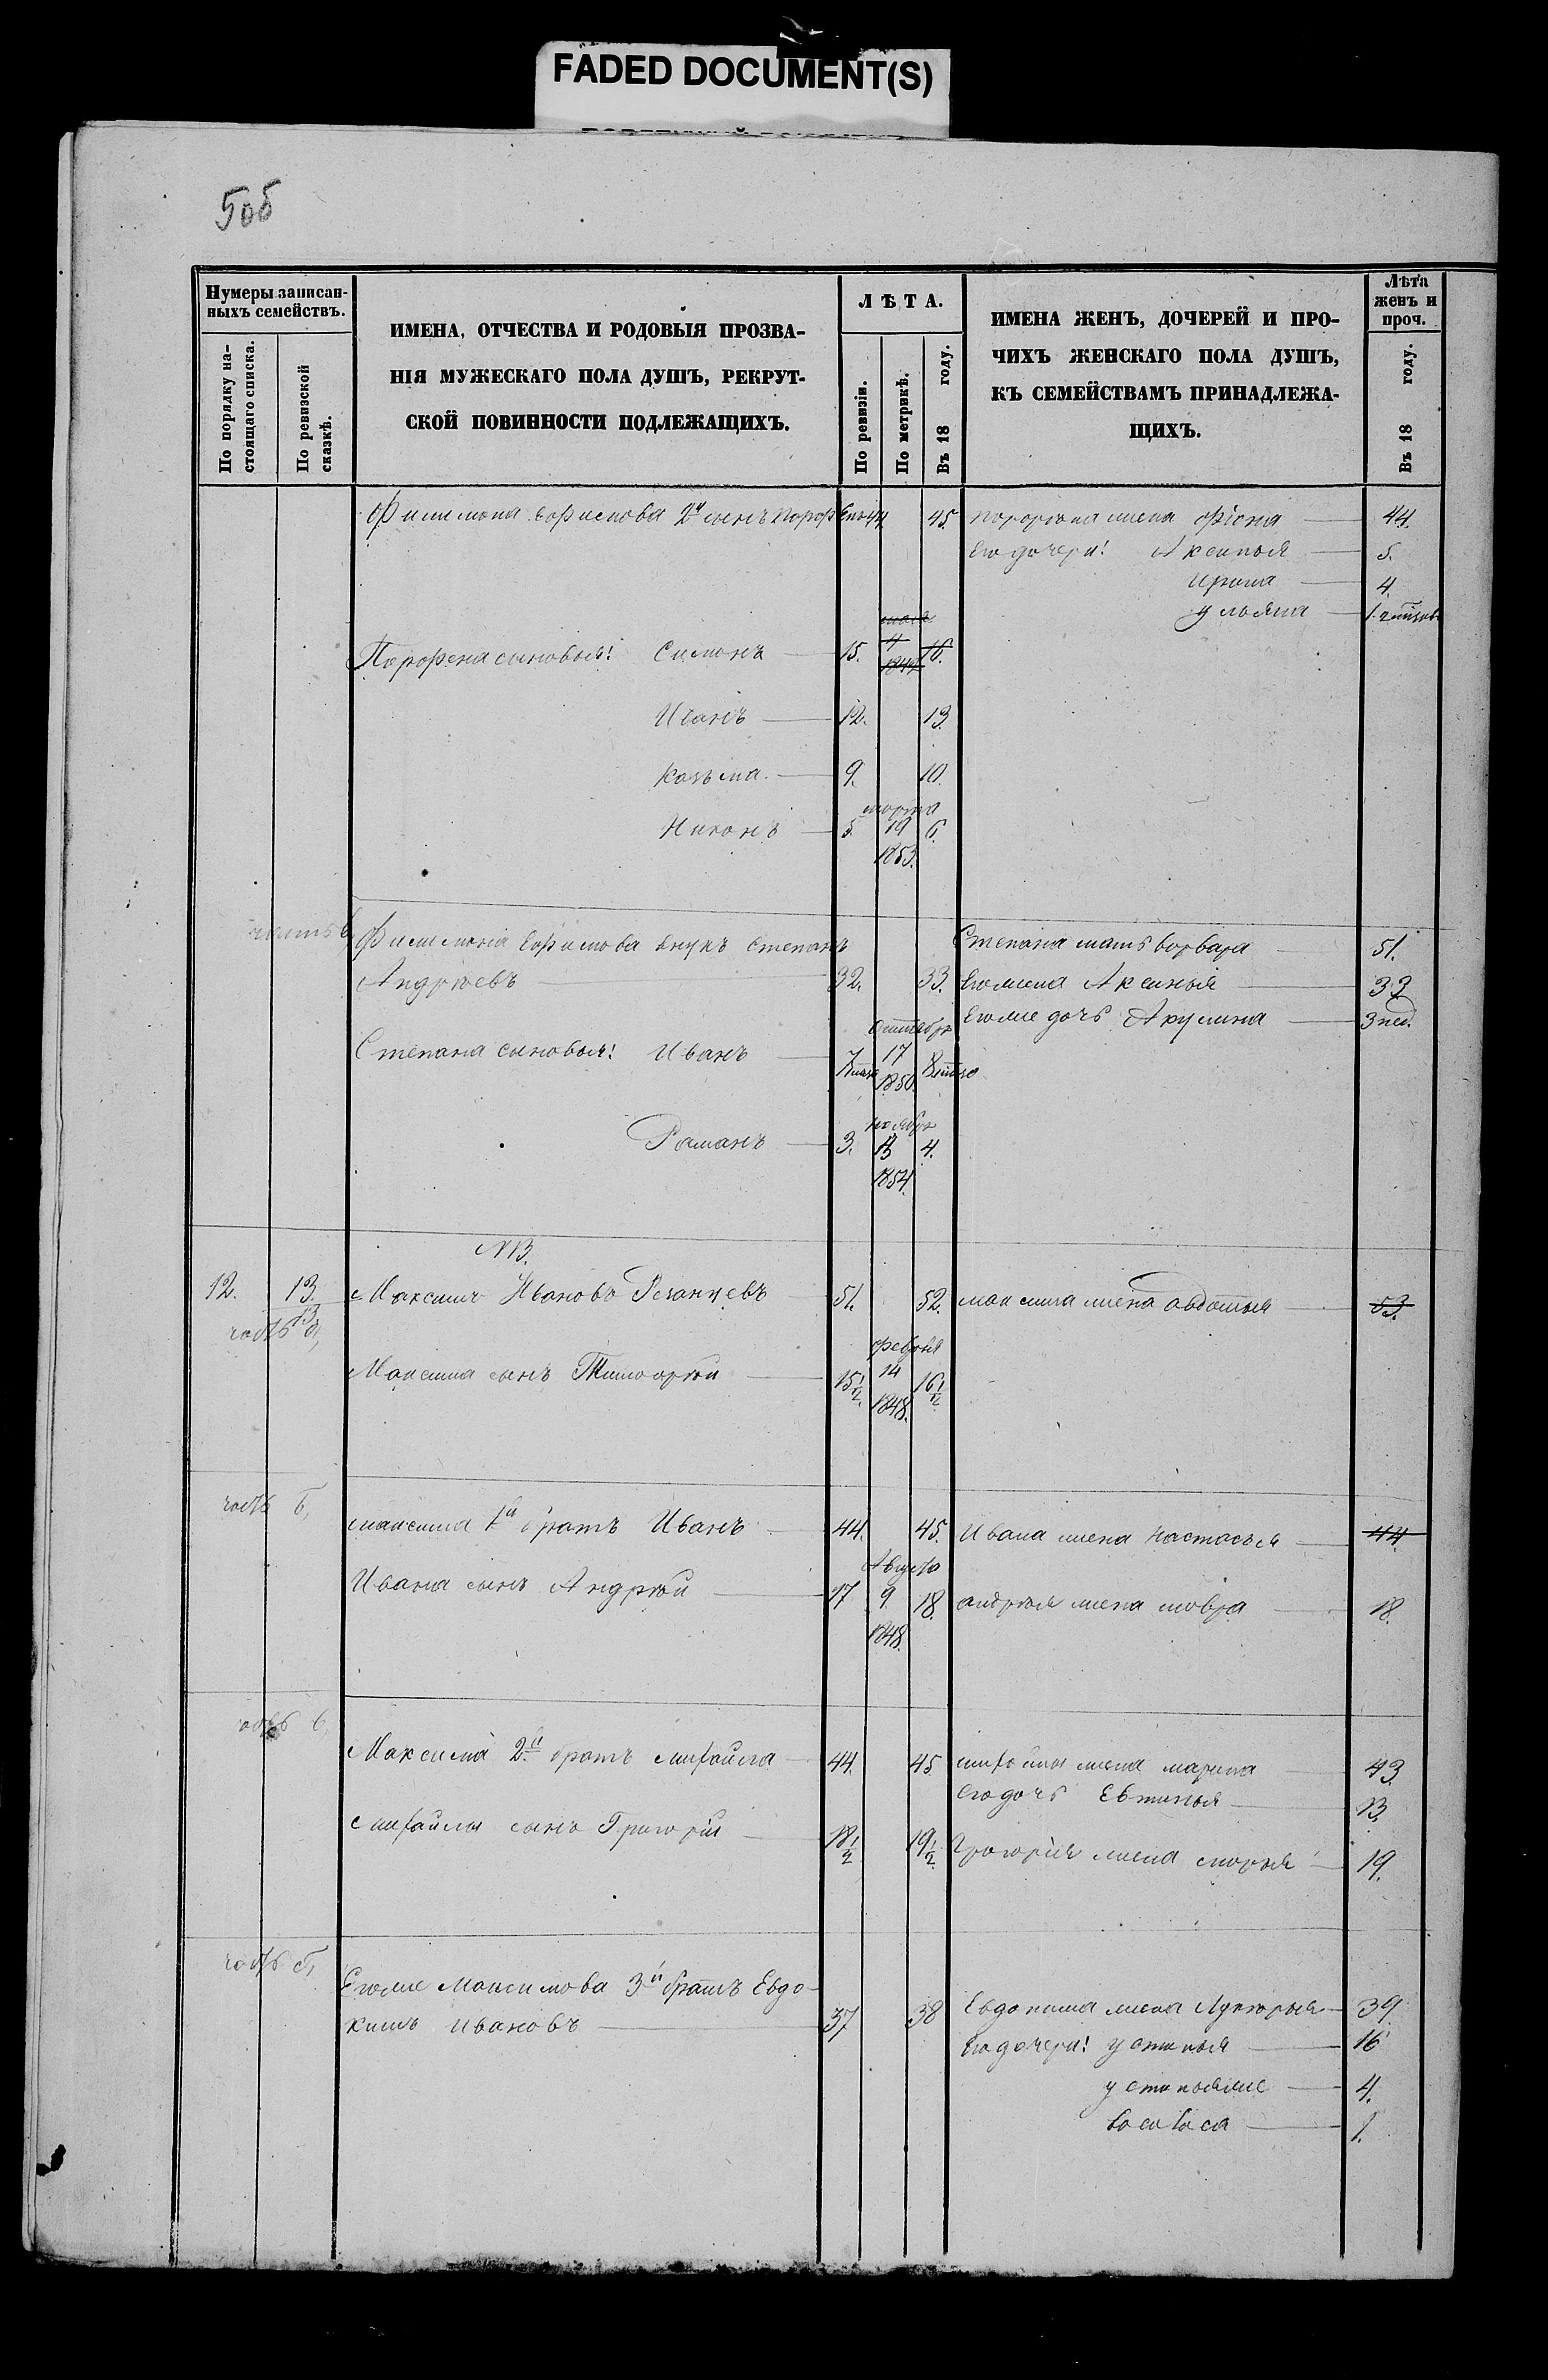 FADED DOCUMENT(S)
506
Нумеры записан-
ныхъ семействъ.
По порядку на-
стоящаго списка.
По ревизской
сказкѣ.
ИМЕНА, ОТЧЕСТВА И РОДОВЫЯ ПРОЗВА-
НІЯ МУЖЕСКАГО ПОЛА ДУШЪ, РЕКРУТ-
СКОЙ ПОВИННОСТИ ПОДЛЕЖАЩИХЪ.
ЛѢТА.
По ревизіи.
По метрикѣ.
Въ 18 году.
ИМЕНА ЖЕНЪ, ДОЧЕРЕЙ И ПРО-
ЧИХЪ ЖЕНСКАГО ПОЛА ДУШЪ,
КЪ СЕМЕЙСТВАМЪ ПРИНАДЛЕЖА-
ЩИХЪ.
Лѣта
женъ и
проч.
Въ 18 году.
Филимона Ефимова 2й сынъ Порфенъ 44 45. Порфена жена Фіона 44.
Его дочери: Аксинья 5.
Ирина 4.
Ульяна 1.
Порфена сыновья: Симонъ 15. 4 16.
Иванъ 12. 13.
Козьма 9. 10.
марта
Никонъ 5. 19 6.
1853.
часть в
Филимона Ефимова внукъ Степанъ Степана мать Варвара 51.
Андреевъ 32. 33. Его жена Аксинья 33
Его же дочь Акулина 3 нед.
Степана сыновья: Иванъ 7 17 8
1850.
ноября
Романъ 3. 13 4.
1854.
№ 13.
12. 13. Максимъ Ивановъ Резанцевъ 51. 52. Максима жена Авдотья 53.
часть а,
февраля
Максима сынъ Тимофей 15 1/2. 14 16 1/2
1848.
часть б,
Максима 1й братъ Иванъ 44. 45. Ивана жена Настасья 44.
Августа
Ивана сынъ Андрей 17 9 18. Андрея жена Мавра 18.
1848.
часть в,
Максима 2й братъ Михайла 44. 45 Михайлы жена Марина 43.
его дочь Евгинья 13.
Михайлы сынъ Григорій 18 1/2 19 1/2 Григорія жена Марья 19.
часть г,
Его же Максимова 3й братъ Евдо-
кимъ Ивановъ 37 38 Евдокима жена Лукерья 39
Его дочери: Устинья 16
Устинья же 4.
Василиса 1.